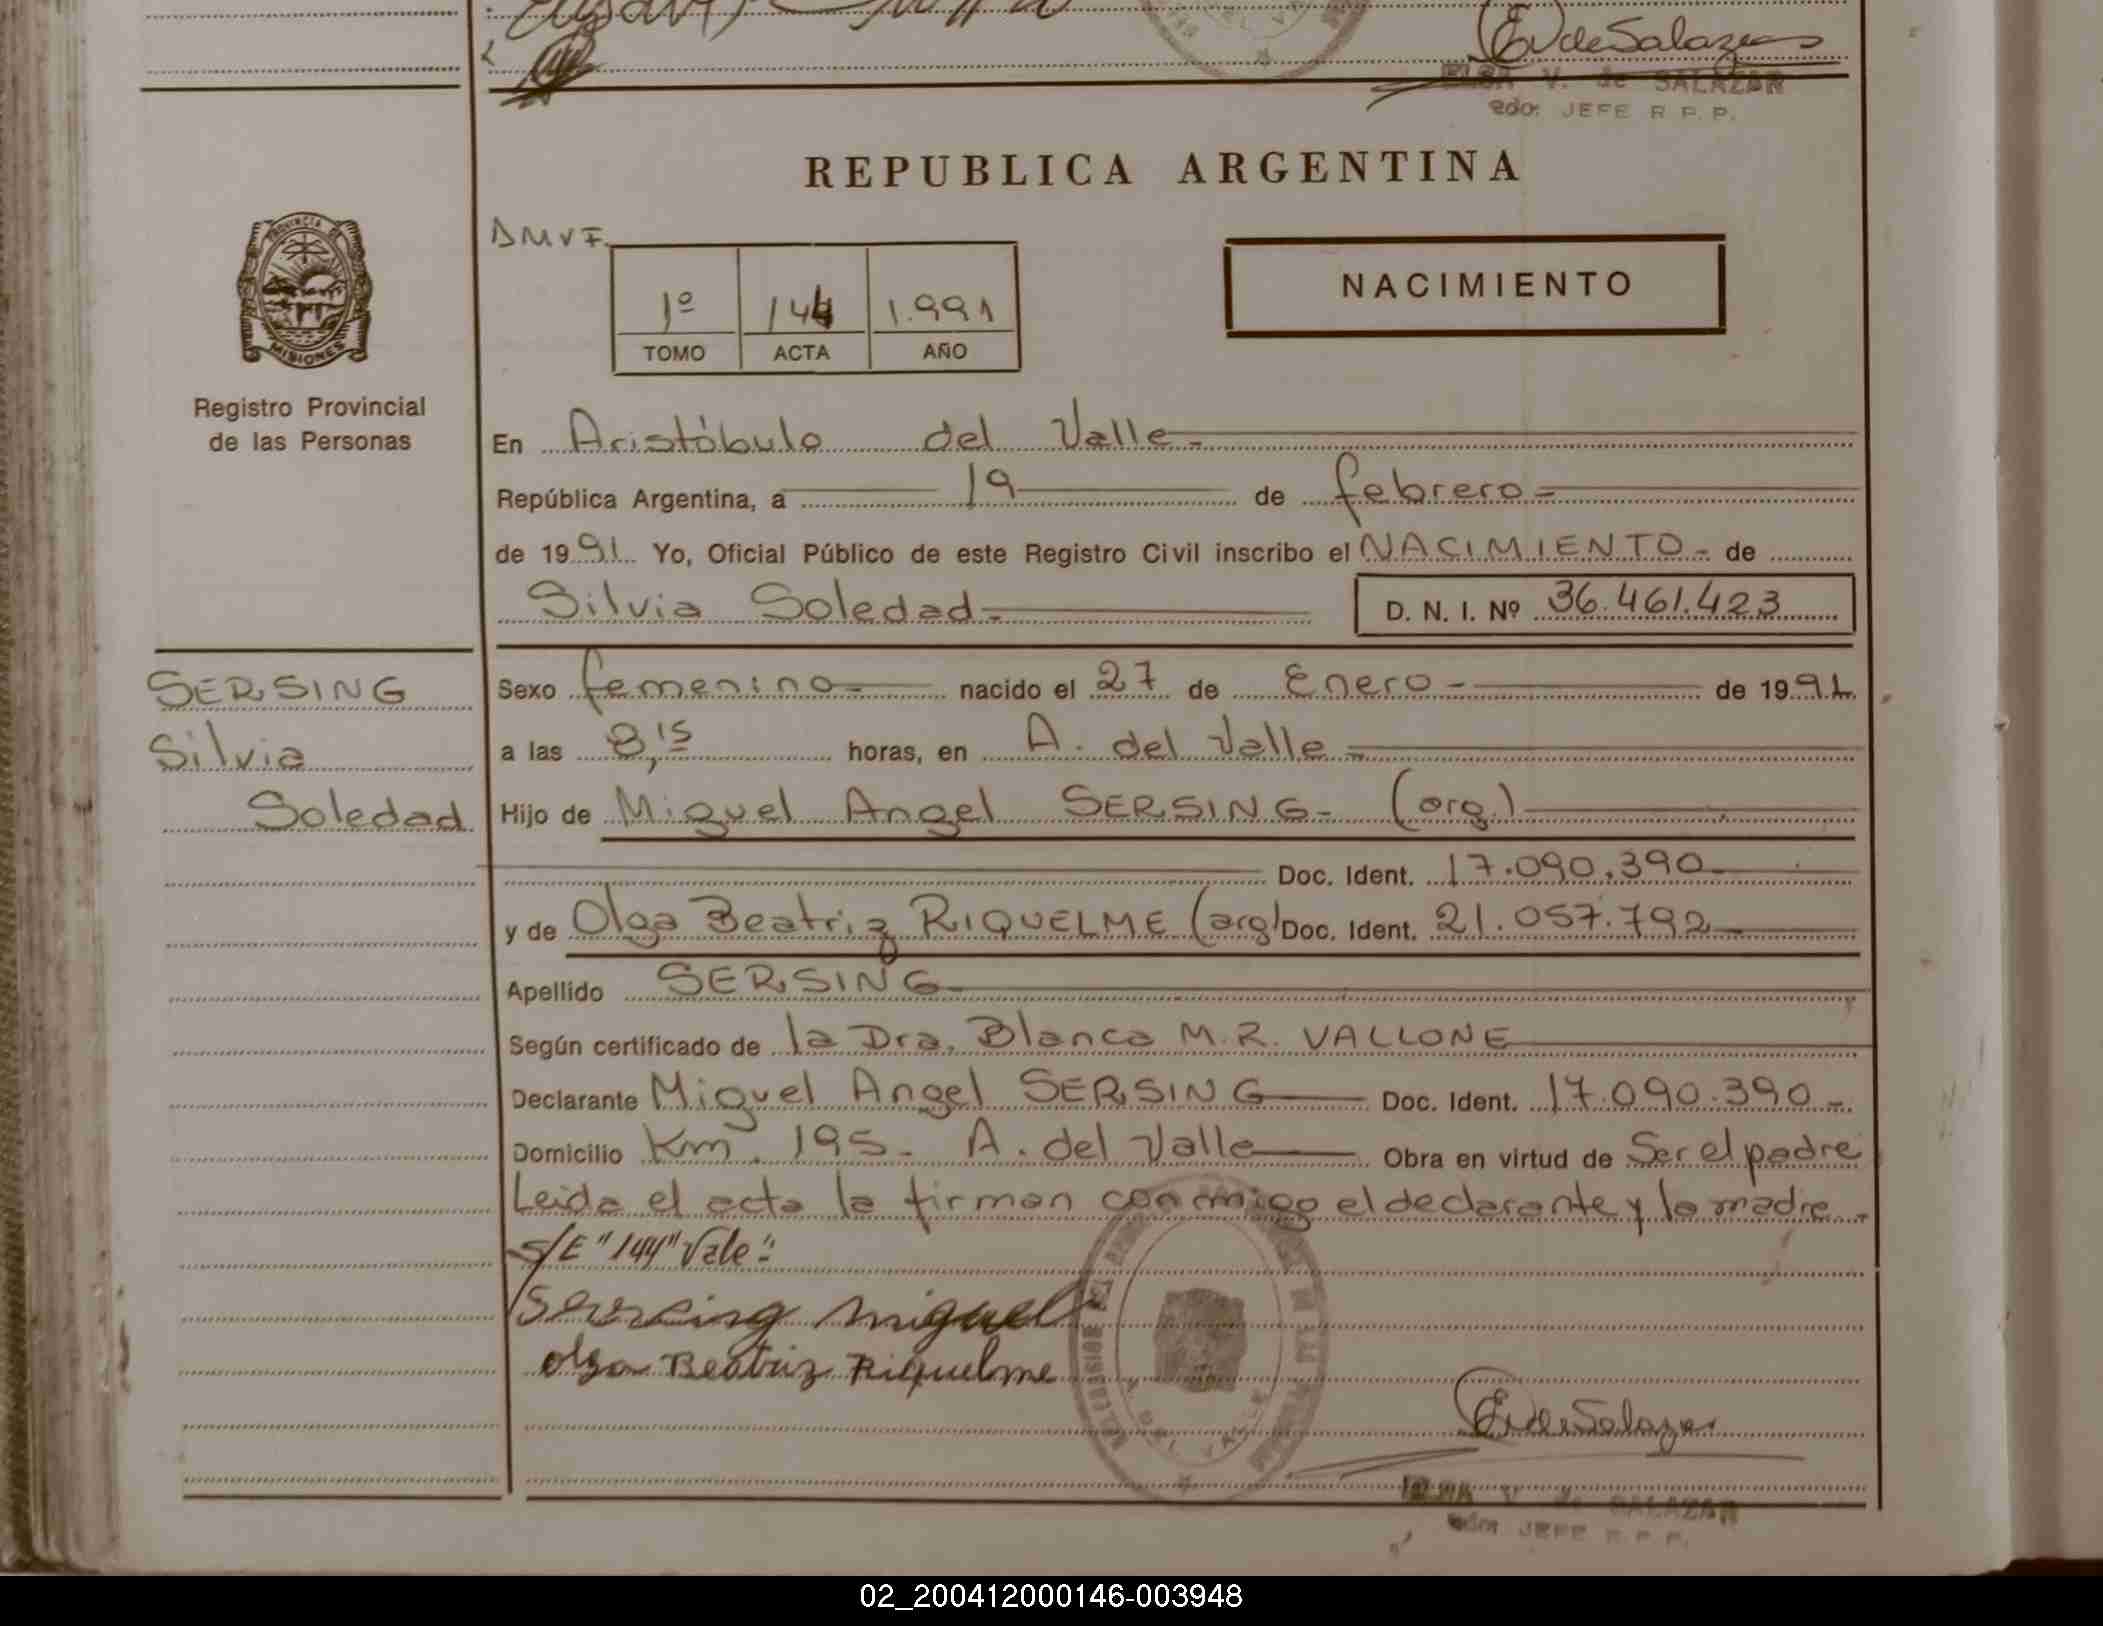 EV de Salazar
ELSA V. de SALAZAR
edo: JEFE R. P. P.
REPUBLICA ARGENTINA
DMVF.
1º 144 1.991
TOMO ACTA AÑO
NACIMIENTO
PROVINCIA DE
MISIONES
Registro Provincial
de las Personas
En Aristóbulo del Valle.-
República Argentina, a 19 de febrero-
de 1991. Yo, Oficial Público de este Registro Civil inscribo el NACIMIENTO- de
Silvia Soledad- D. N. I. Nº 36.461.423
SERSING
Silvia
Soledad
Sexo femenino- nacido el 27 de Enero- de 1991.
a las 8,15 horas, en A. del Valle-
Hijo de Miguel Angel SERSING- (arg.)
Doc. Ident. 17.090.390
y de Olga Beatriz RIQUELME (arg) Doc. Ident. 21.057.792
Apellido SERSING
Según certificado de la Dra. Blanca M.R. VALLONE
Declarante Miguel Angel SERSING Doc. Ident. 17.090.390-
Domicilio Km. 195- A. del Valle Obra en virtud de Ser el padre
Leida el acta la firman conmigo el declarante y la madre.-
S/E "144" Vale"
Sersing Miguel
Olga Beatriz Riquelme
DEL VALLE
EV de Salazar
ELSA V. de SALAZAR
edo: JEFE R. P. P.
02_200412000146-003948